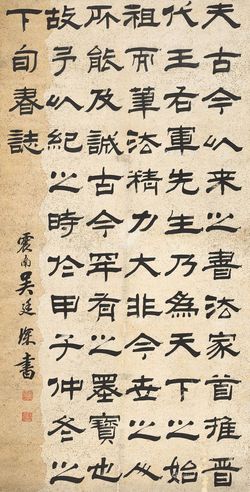 夫古今以来之書法家首推晋
代王右軍先生乃為天下之始
祖而筆法精力大非今世之从
所能及誠古今罕有之墨寶也
故予以紀之時於甲子仲冬之
下旬春誌
震南吴廷琛書